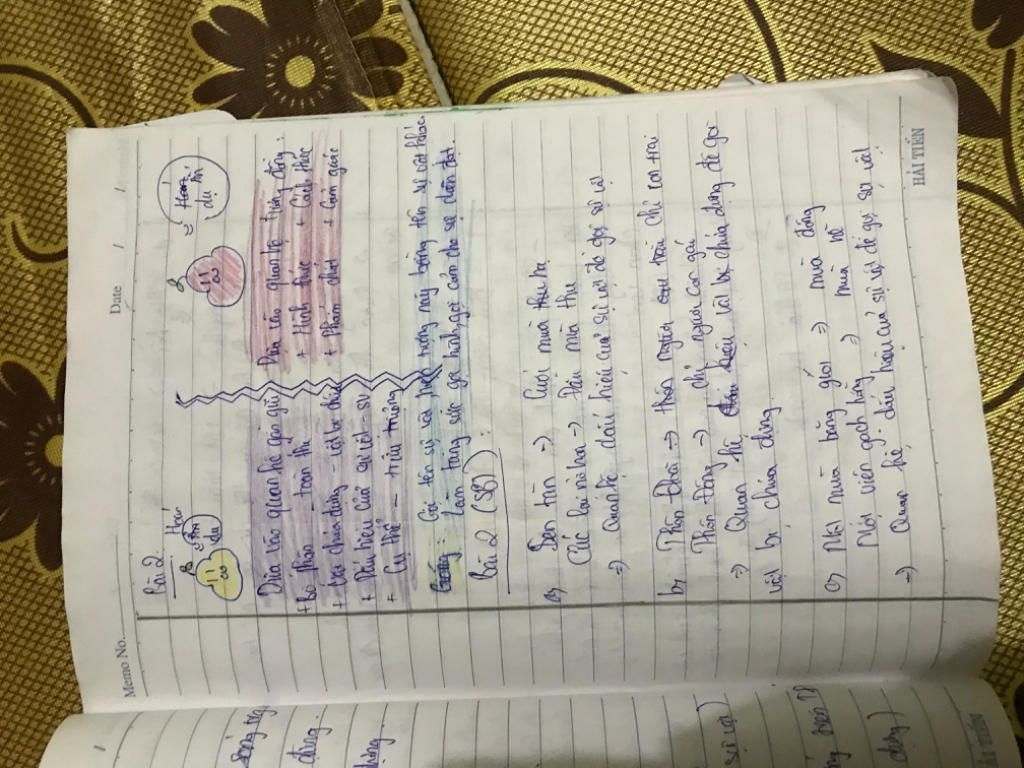 Memo No.
Date / /
Bài 2
Hoán
= Ẩn
dụ
2
= Hoán
Ẩn
dụ
Dựa vào quan hệ gần gũi
+ bộ phận - toàn thể
+ vật chứa đựng - vật bị chứa
+ Dấu hiệu của sự vật - sự
+ Cụ thể - trừu tượng
Dựa vào quan hệ tương đồng.
+ Hình thức + Cách thức
+ Phẩm chất + Cảm giác
Gọi tên sự vật hiện tượng này bằng tên sự vật khác
Làm tăng sức gợi hình, gợi cảm cho sự diễn đạt.
Bài 2 (SBT) :
a, Sen tàn => Cuối mùa thu hạ
Cúc lại nở hoa => Đầu mùa thu
=> Quan hệ dấu hiệu của sự vật để gọi sự vật
b, Thôn Đoài => thôn người con trai chỉ con trai
Thôn Đông => chỉ người con gái
=> Quan hệ vật bị chứa đựng để gọi
vật bị chứa đựng
c, Một mùa băng giá => mùa đông
Một viên gạch hồng => mùa
=> Quan hệ dấu hiệu của sự vật để gọi sự vật
HẢI TIẾN
đựng.
sự vật)
đựng)
HẢI TIẾN